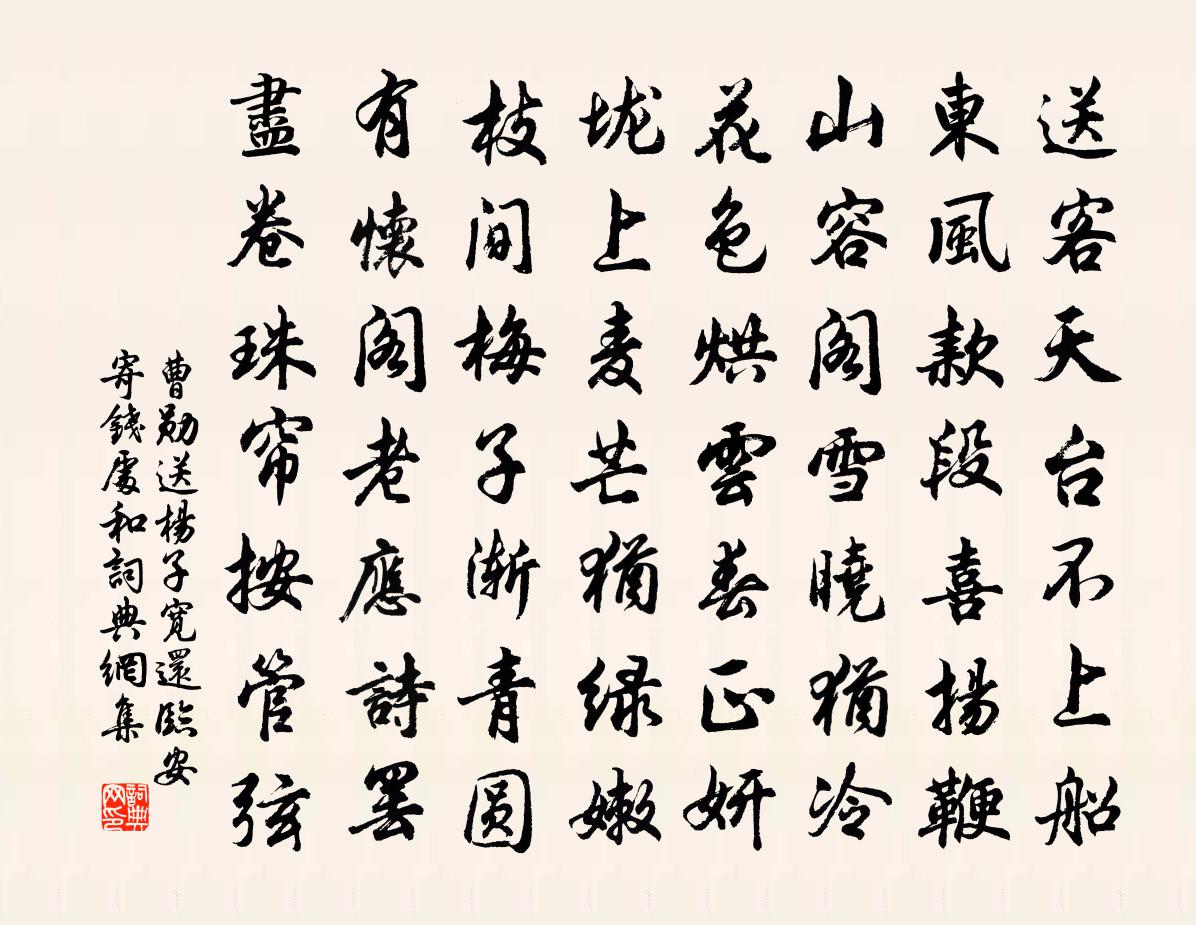 送客天台不上船
東風款段喜揚鞭
山容阁雪曉猶冷
花色烘雲春正妍
垅上麦芒猶绿嫩
枝间梅子渐青圆
有懷阁老應詩罢
盡卷珠帘按管弦
曹勛送楊子寬還臨安
寄錢處和詞典網集
詞典网印